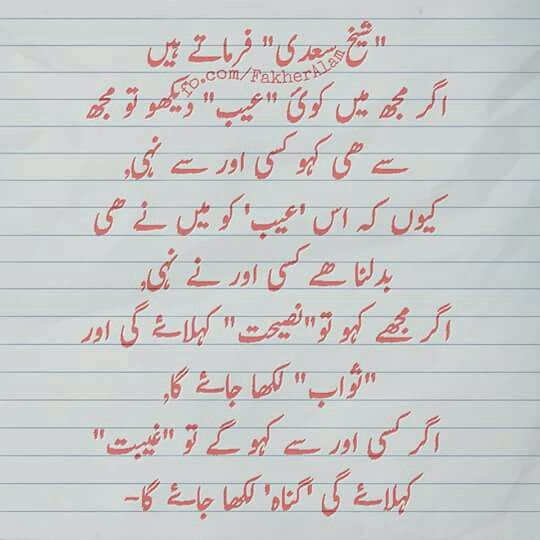 "شیخ سعدی" فرماتے ہیں
fb.com/FakherAlam
اگر مجھ میں کوئ "عیب" دیکھو تو مجھ
سے ھی کہو کسی اور سے نہی,
کیوں کہ اس 'عیب' کو میں نے ھی
بدلنا ھے کسی اور نے نہی,
اگر مجھے کہو تو "نصیحت" کہلائے گی اور
"ثواب" لکھا جائے گا,
اگر کسی اور سے کہو گے تو "غیبت"
کہلائے گی 'گناہ' لکھا جائے گا-